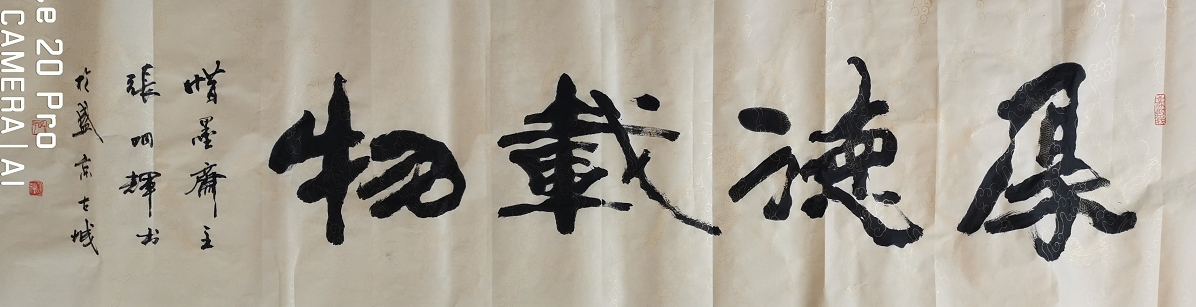 厚德載物
惜墨齋主
張明輝书
於盛京古城
20 Pro
CAMERA | AI